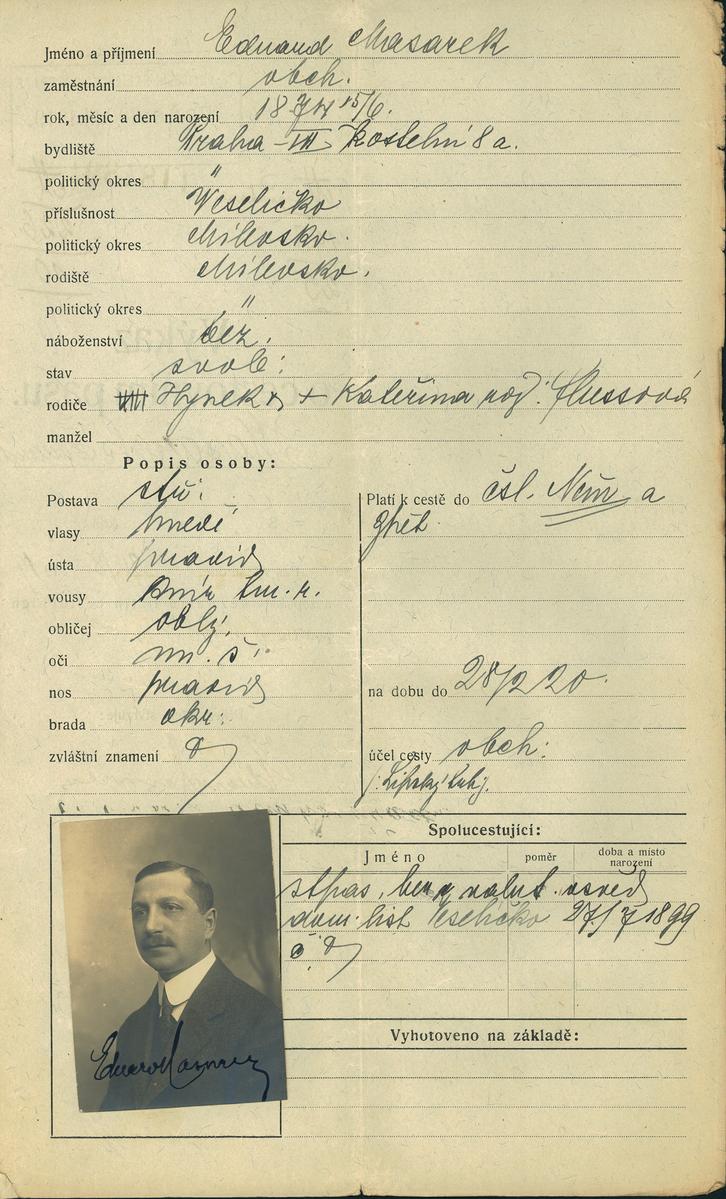 Jméno a příjmení Eduard Masarek
zaměstnání obch.
rok, měsíc a den narození 1874 15/6.
bydliště Praha - VII Kostelní 8 a.
politický okres "
příslušnost Veselíčko
politický okres Milevsko.
rodiště Milevsko.
politický okres "
náboženství bez.
stav svob:
rodiče Hynek + Kateřina roz. Flussová
manžel
Popis osoby:
Postava stř:
vlasy hnědé
ústa pravid
vousy knír tm. r.
obličej oblý.
oči
nos pravid
brada okr:
zvláštní znamení
Platí k cestě do čsl. Něm a
zpět
na dobu do 28/2 20.
účel cesty obch:
Lipský
Spolucestující:
Jméno poměr doba a místo narození
valut. osvěd
dom. list Veselíčko 27/7 1899
č.
Vyhotoveno na základě: